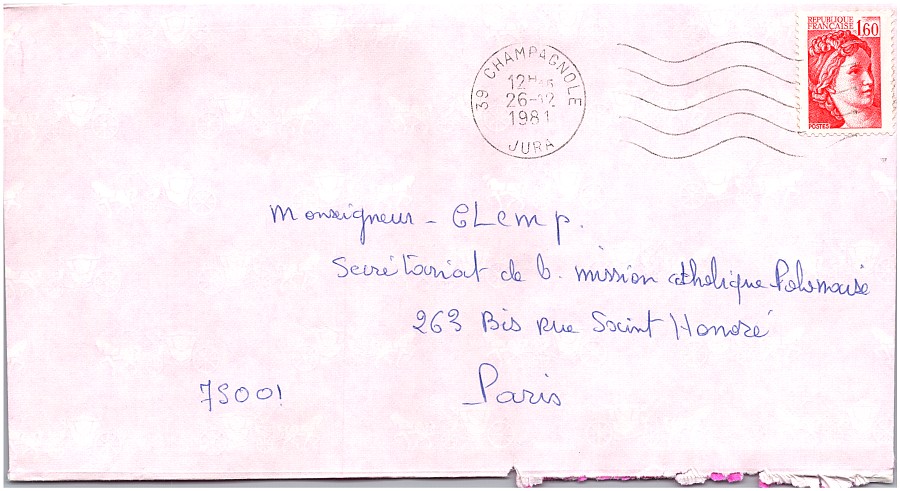 RÉPUBLIQUE
FRANÇAISE 1,60
POSTES
39 CHAMPAGNOLE
12H
26-12
1981
JURA
Monseigneur - GLemp.
Secrétariat de la mission catholique Polonaise
263 Bis rue Saint Honoré
75001 Paris